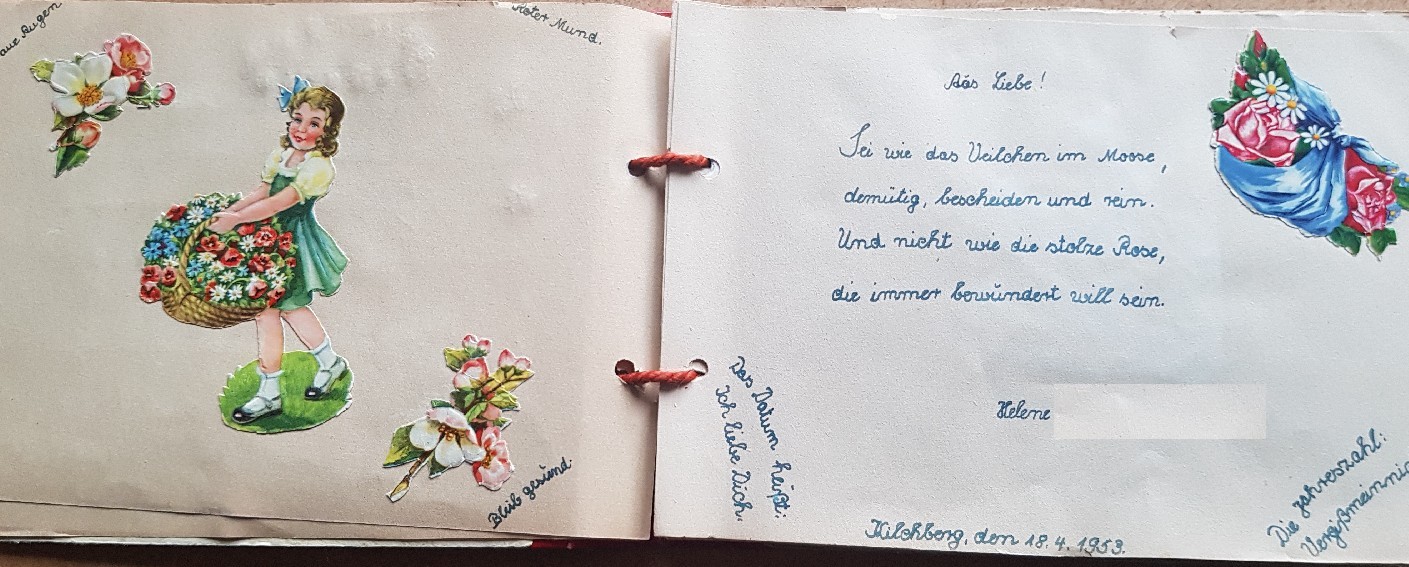 Augen
Roter Mund.
Bleib gesund.
Liebe!
Sei wie das Veilchen im Moose,
demütig, bescheiden und rein.
Und nicht wie die stolze Rose,
die immer bewundert will sein.
Helene
Das Datum heißt:
Ich liebe Dich.
Kilchberg, den 18.4.1953.
Die Jahreszahl: